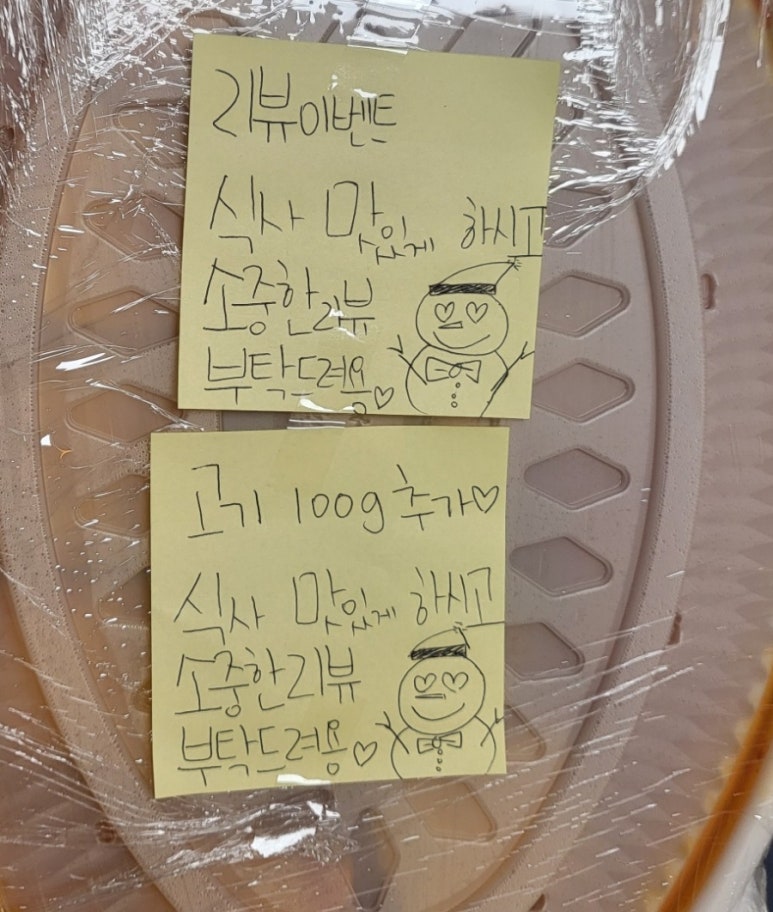 리뷰이벤트
식사 맛있게 하시고
소중한리뷰
부탁드려용♡
고기 100g 추가♡
식사 맛있게 하시고
소중한리뷰
부탁드려용♡